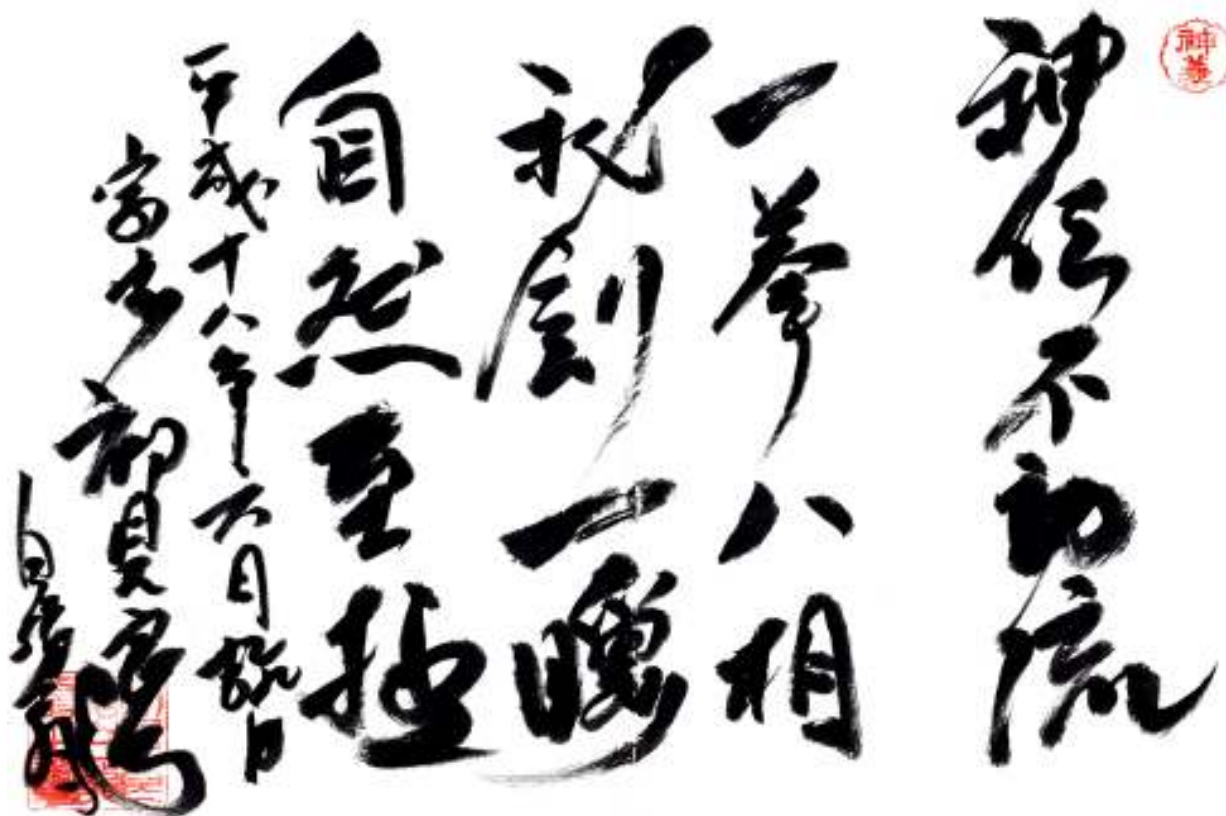 神伝不動流
一拳八相
祝剣一騰
自然至極
平成十八年六月諭日
宗家 初見良昭
白龍翁